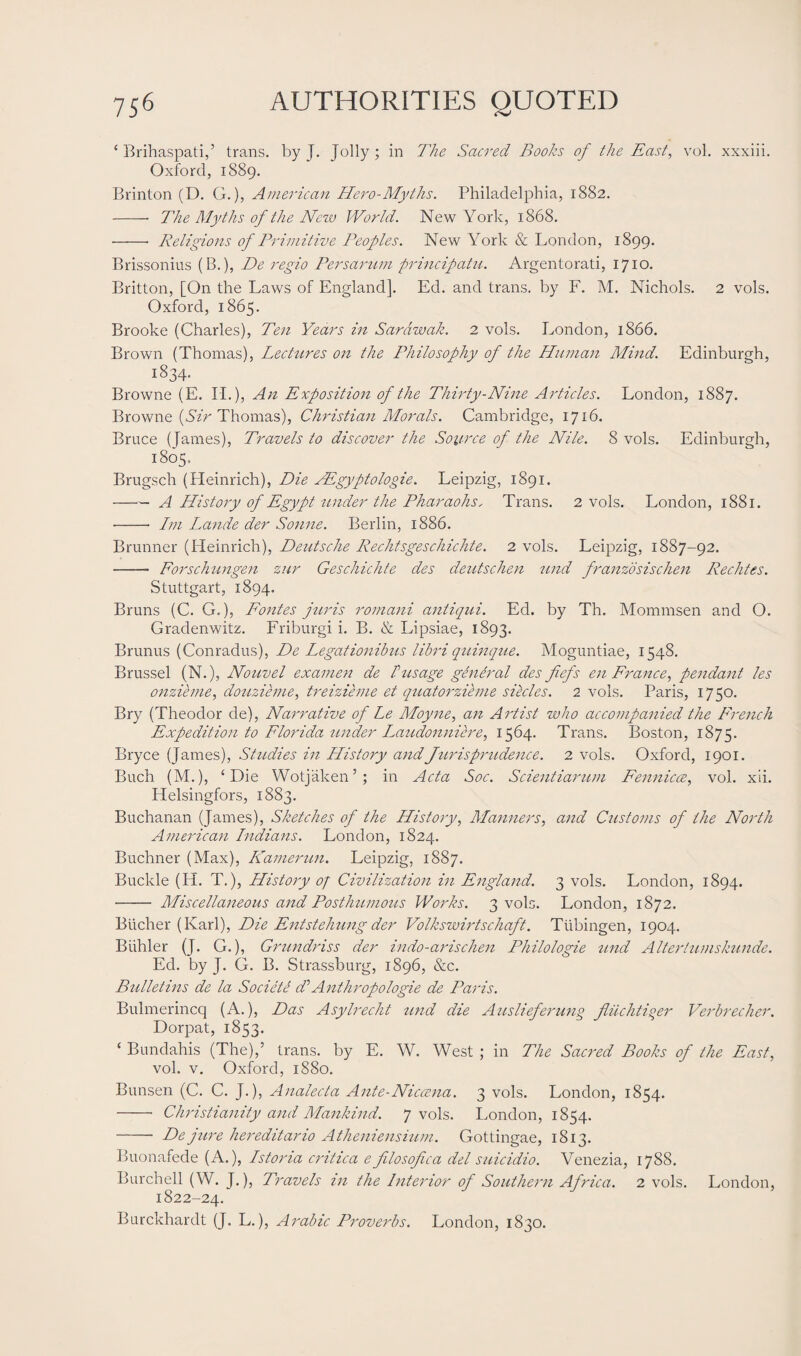 756 AUTHORITIES QUOTED
‘Brihaspati,’ trans. by J. Jolly; in The Sacred Books of the East, vol. xxxiii.
Oxford, 1889.
Brinton (D. G.), American Hero-Myths. Philadelphia, 1882.
—— The Myths of the New World. New York, 1868.
—— Religions of Primitive Peoples. New York & London, 1899.
Brissonius (B.), De regio Persarum principatu. Argentorati, 1710.
Britton, [On the Laws of England]. Ed. and trans. by F. M. Nichols. 2 vols.
Oxford, 1865.
Brooke (Charles), Ten Years in Saráwak. 2 vols. London, 1866.
Brown (Thomas), Lectures on the Philosophy of the Human Mind. Edinburgh,
1834.
Browne (E. H.), An Exposition of the Thirty-Nine Articles. London, 1887.
Browne (Sir Thomas), Christian Morals. Cambridge, 1716.
Bruce (James), Travels to discover the Source of the Nile. 8 vols. Edinburgh,
1805.
Brugsch (Heinrich), Die Ægyptologie. Leipzig, 1891.
—— A History of Egypt under the Pharaohs. Trans. 2 vols. London, 1881.
—— Im Lande der Sonne. Berlin, 1886.
Brunner (Heinrich), Deutsche Rechtsgeschichte. 2 vols. Leipzig, 1887-92.
—— Forschungen zur Geschichte des deutschen und französischen Rechtes.
Stuttgart, 1894.
Bruns (C. G.), Fontes juris romani antiqui. Ed. by Th. Mommsen and O.
Gradenwitz. Friburgi i. B. & Lipsiae, 1893.
Brunus (Conradus), De Legationibus libri quinque. Moguntiae, 1548.
Brussel (N.), Nouvel examen de l'usage général des fiefs en France, pendant les
onzième, douzième, treizième et quatorzième siècles. 2 vols. Paris, 1750.
Bry (Theodor de), Narrative of Le Moyne, an Artist who accompanied the French
Expedition to Florida under Laudonnière, 1564. Trans. Boston, 1875.
Bryce (James), Studies in History and Jurisprudence. 2 vols. Oxford, 1901.
Buch (M.), ‘Die Wotjäken’; in Acta Soc. Scientiarum Fennicæ, vol. xii.
Helsingfors, 1883.
Buchanan (James), Sketches of the History, Manners, and Customs of the North
American Indians. London, 1824.
Buchner (Max), Kamerun. Leipzig, 1887.
Buckle (H. T.), History of Civilization in England. 3 vols. London, 1894.
—— Miscellaneous and Posthumous Works. 3 vols. London, 1872.
Bücher (Karl), Die Entstehung der Volkswirtschaft. Tübingen, 1904.
Bühler (J. G.), Grundriss der indo-arischen Philologie und Altertumskunde.
Ed. by J. G. B. Strassburg, 1896, &c.
Bulletins de la Société d'Anthropologie de Paris.
Bulmerincq (A.), Das Asylrecht und die Auslieferung flüchtiger Verbrecher.
Dorpat, 1853.
‘Bundahis (The),’ trans. by E. W. West; in The Sacred Books of the East,
vol. v. Oxford, 1880.
Bunsen (C. C. J.), Analecta Ante-Nicæna. 3 vols. London, 1854.
—— Christianity and Mankind. 7 vols. London, 1854.
—— De jure hereditario Atheniensium. Gottingae, 1813.
Buonafede (A.), Istoria critica e filosofica del suicidio. Venezia, 1788.
Burchell (W. J.), Travels in the Interior of Southern Africa. 2 vols. London,
1822-24.
Burckhardt (J. L.), Arabic Proverbs. London, 1830.